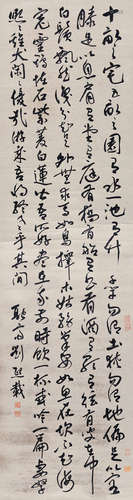 十畝之宅五畝之園有水一池有竹千竿勿謂土狹勿謂地偏足以容
膝足以息肩有堂有庭有橋有船有書有酒有歌有弦有叟在中
白鬚飄然識分知足外無求焉如鳥擇木姑務巢安如龜居坎不知海
寬靈鶴怪石紫菱白蓮皆吾所好盡在吾前時飲一杯或吟一篇妻孥
熙熙雞犬閒閒優哉游哉吾將終老乎其間 融齋劉熙載